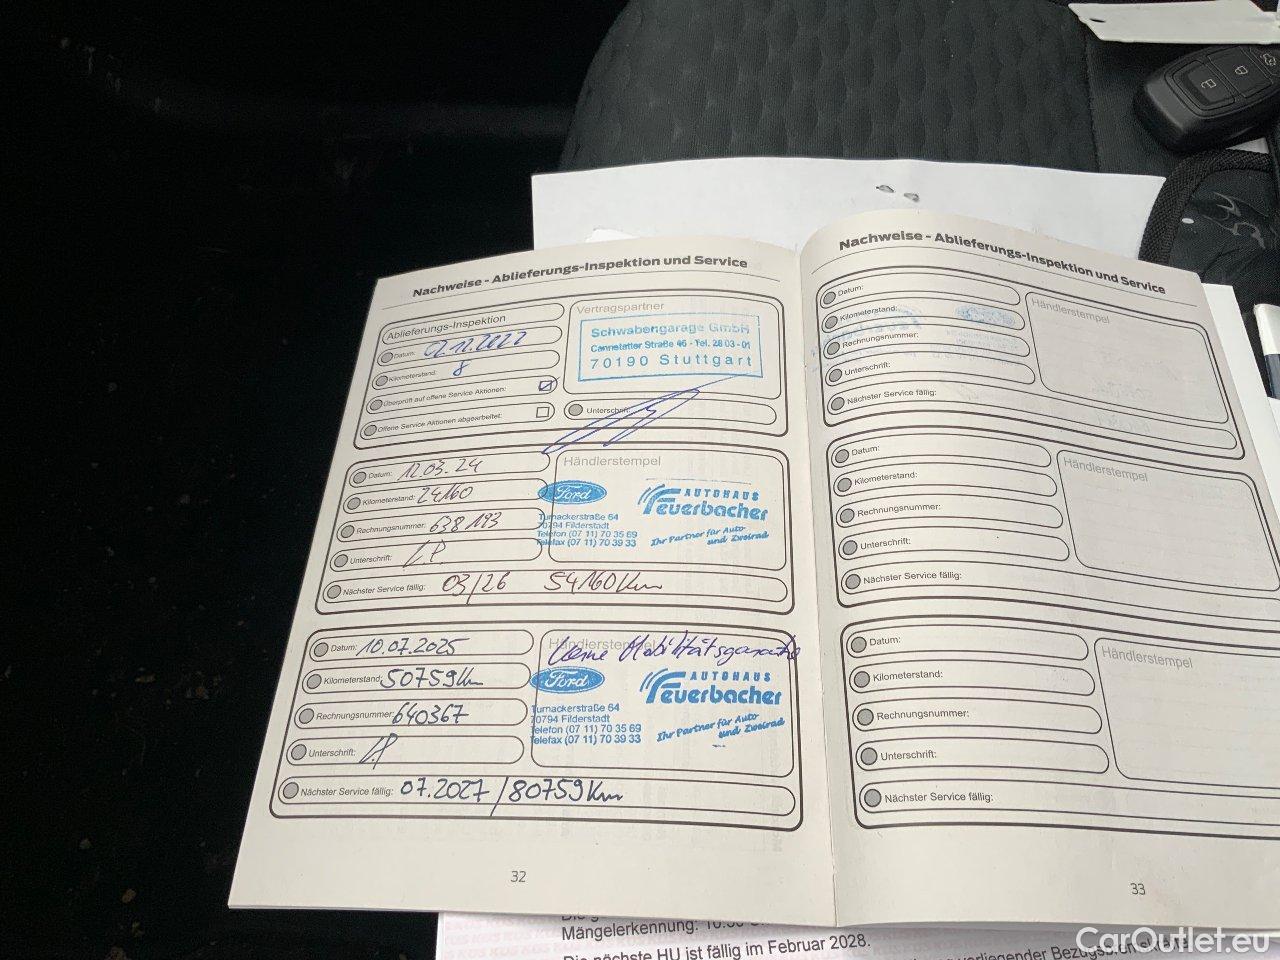 Nachweise - Ablieferungs-Inspektion und Service
Ablieferungs-Inspektion
Datum: 02.12.2022
Kilometerstand: 8
Überprüft auf offene Service Aktionen:
Offene Service Aktionen abgearbeitet:
Vertragspartner
Schwabengarage GmbH
Cannstatter Straße 46 - Tel. 28 03 - 01
70190 Stuttgart
Unterschrift:
Datum: 12.03.24
Kilometerstand: 24160
Rechnungsnummer: 638193
Unterschrift:
Nächster Service fällig: 03/26 54160 Km
Händlerstempel
Ford
Turnackerstraße 64
70794 Filderstadt
Telefon (07 11) 70 35 69
Telefax (07 11) 70 39 33
AUTOHAUS
Feuerbacher
Ihr Partner für Auto
und Zweirad
Datum: 10.07.2025
Kilometerstand: 50759Km
Rechnungsnummer: 640367
Unterschrift:
Nächster Service fällig: 07.2027 / 80759 Km
Händlerstempel
keine Mobilitätsgarantie
Ford
Turnackerstraße 64
70794 Filderstadt
Telefon (07 11) 70 35 69
Telefax (07 11) 70 39 33
AUTOHAUS
Feuerbacher
Ihr Partner für Auto
und Zweirad
32
Nachweise - Ablieferungs-Inspektion und Service
Datum:
Kilometerstand:
Rechnungsnummer:
Unterschrift:
Nächster Service fällig:
Händlerstempel
Datum:
Kilometerstand:
Rechnungsnummer:
Unterschrift:
Nächster Service fällig:
Händlerstempel
Datum:
Kilometerstand:
Rechnungsnummer:
Unterschrift:
Nächster Service fällig:
Händlerstempel
33
Mängelerkennung:
Die nächste HU ist fällig im Februar 2028.
CarOutlet.eu